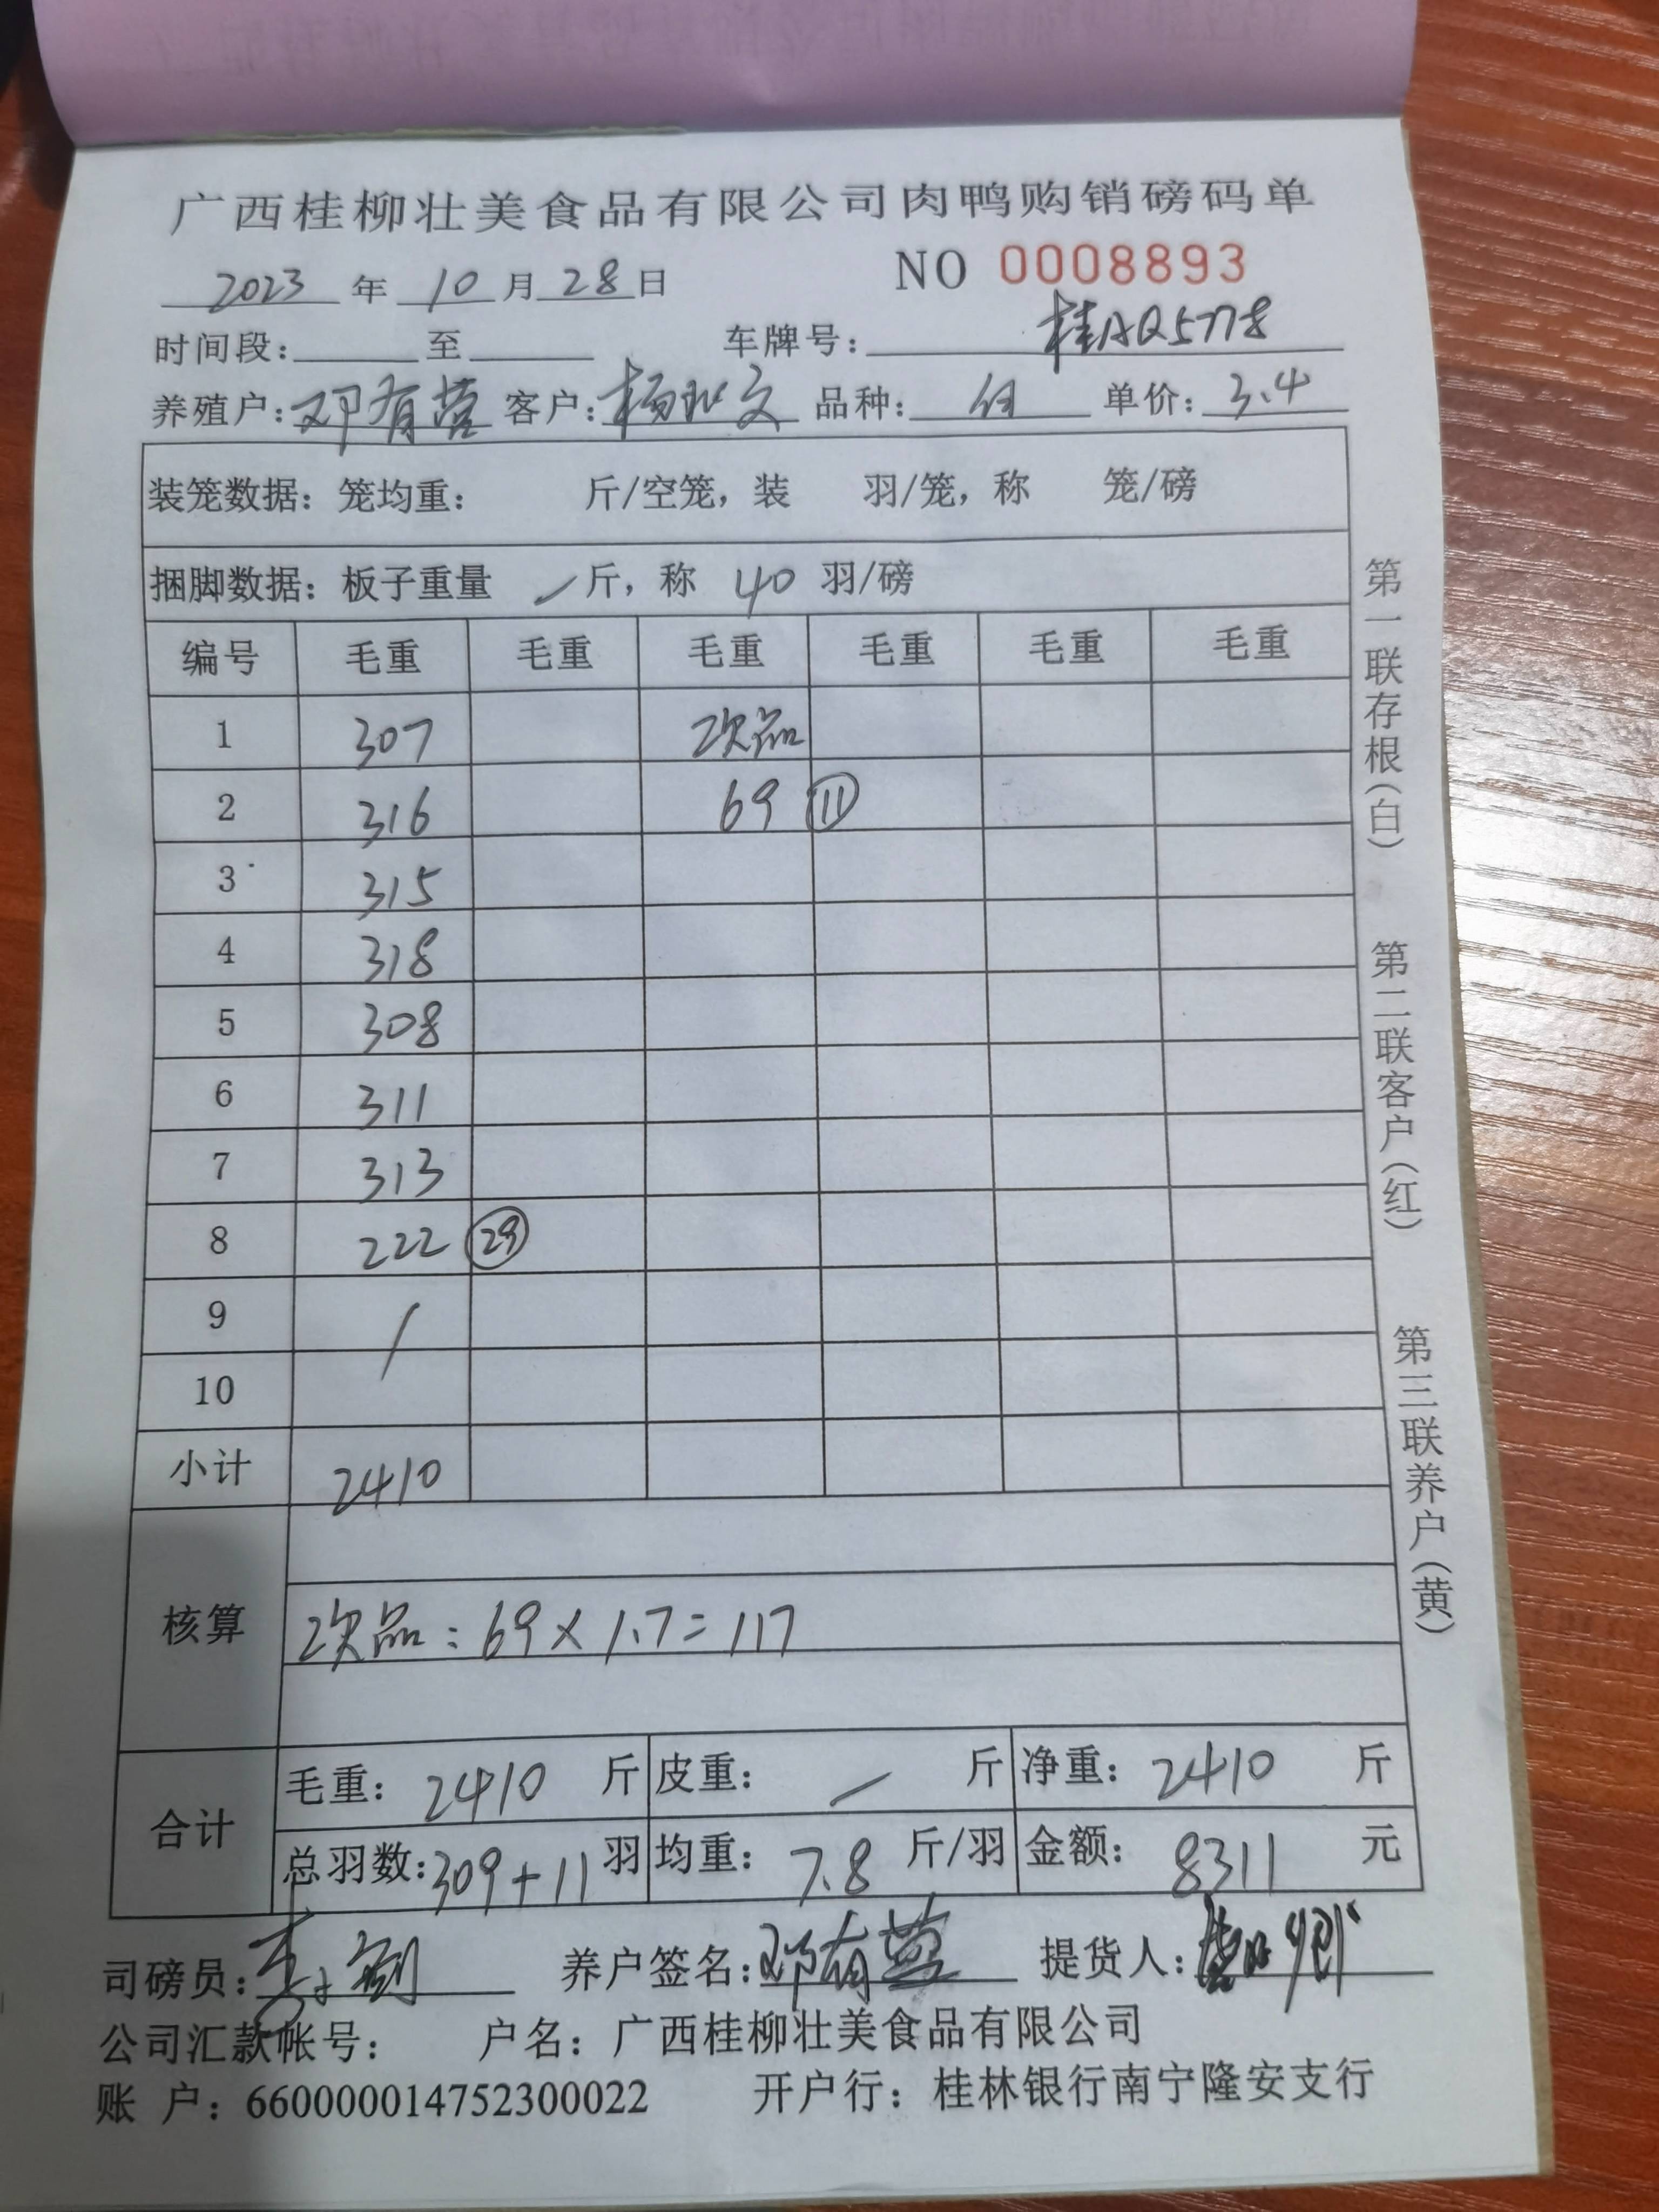 广西桂柳壮美食品有限公司肉鸭购销磅码单
2023 年 10 月 28 日 NO 0008893
时间段: 至 车牌号: 桂AQ5778
养殖户: 邓有营 客户: 杨 文 品种: 白 单价: 3.4
装笼数据: 笼均重: 斤/空笼, 装 羽/笼, 称 笼/磅
捆脚数据: 板子重量 / 斤, 称 40 羽/磅
编号 毛重 毛重 毛重 毛重 毛重 毛重
1 307 次品
2 316 69 ⑪
3 315
4 318
5 308
6 311
7 313
8 222 ㉙
9 /
10
小计 2410
核算
次品: 69 × 1.7 = 117
合计
毛重: 2410 斤 皮重: / 斤 净重: 2410 斤
总羽数: 309 + 11 羽 均重: 7.8 斤/羽 金额: 8311 元
司磅员: 养户签名: 邓有营 提货人:
公司汇款帐号: 户名: 广西桂柳壮美食品有限公司
账 户: 660000014752300022 开户行: 桂林银行南宁隆安支行
第一联存根(白)
第二联客户(红)
第三联养户(黄)